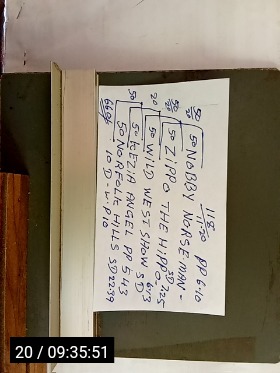 118
11:20 PP 6:10
50 NOBBY NORSEMAN -
50 ZIPPO THE HIPPO SD 7.25
50 WILD WEST SHOW SD 6/3
50 KEZIA ANGEL PP 5 43
50 NORFOLK HILLS SD 22 39
10 D-WIP10
50
20
50
20 / 09:35:51